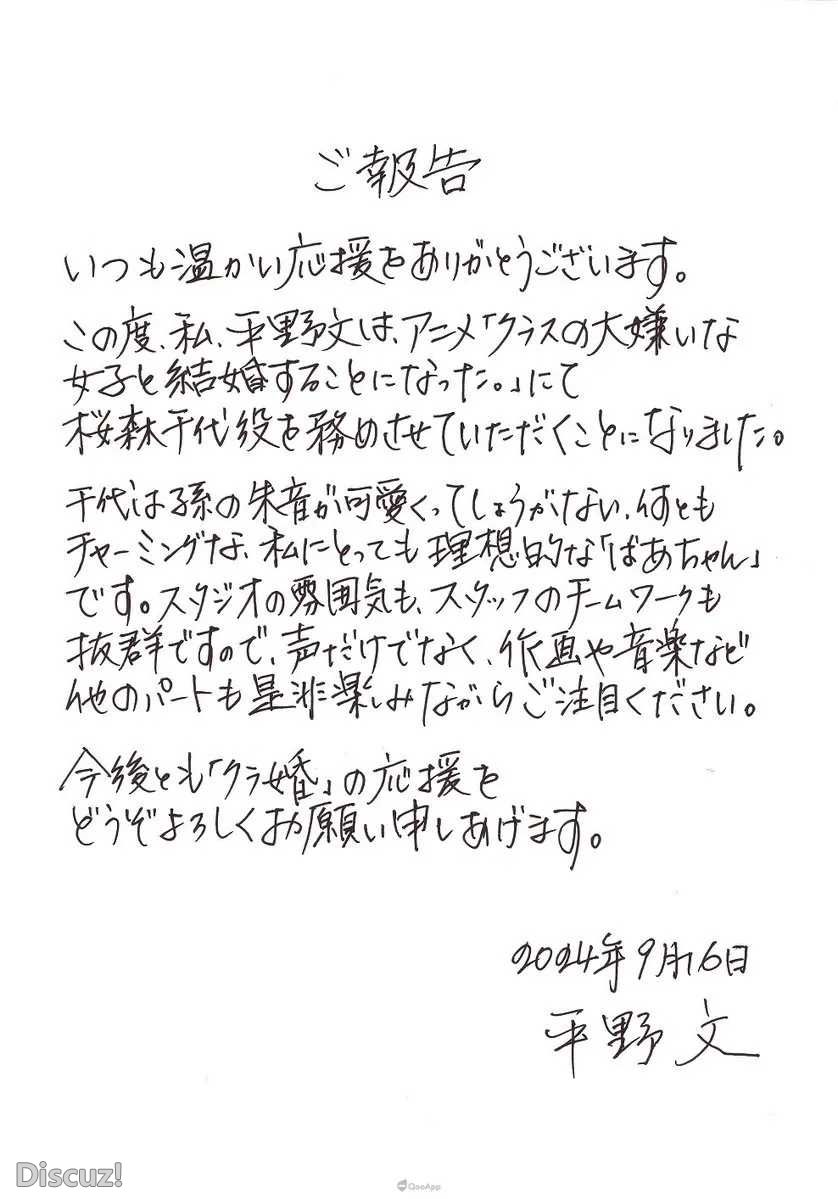 ご報告
いつも温かい応援をありがとうございます。
この度、私、平野文は、アニメ「クラスの大嫌いな
女子と結婚することになった。」にて
桜森千代役を務めさせていただくことになりました。
千代は孫の朱音が可愛くってしょうがない、何とも
チャーミングな、私にとっても理想的な「ばあちゃん」
です。スタジオの雰囲気も、スタッフのチームワークも
抜群ですので、声だけでなく、作画や音楽など
他のパートも是非楽しみながらご注目ください。
今後とも「クラ婚」の応援を
どうぞよろしくお願い申しあげます。
2024年9月16日
平野 文
Discuz!
QooApp